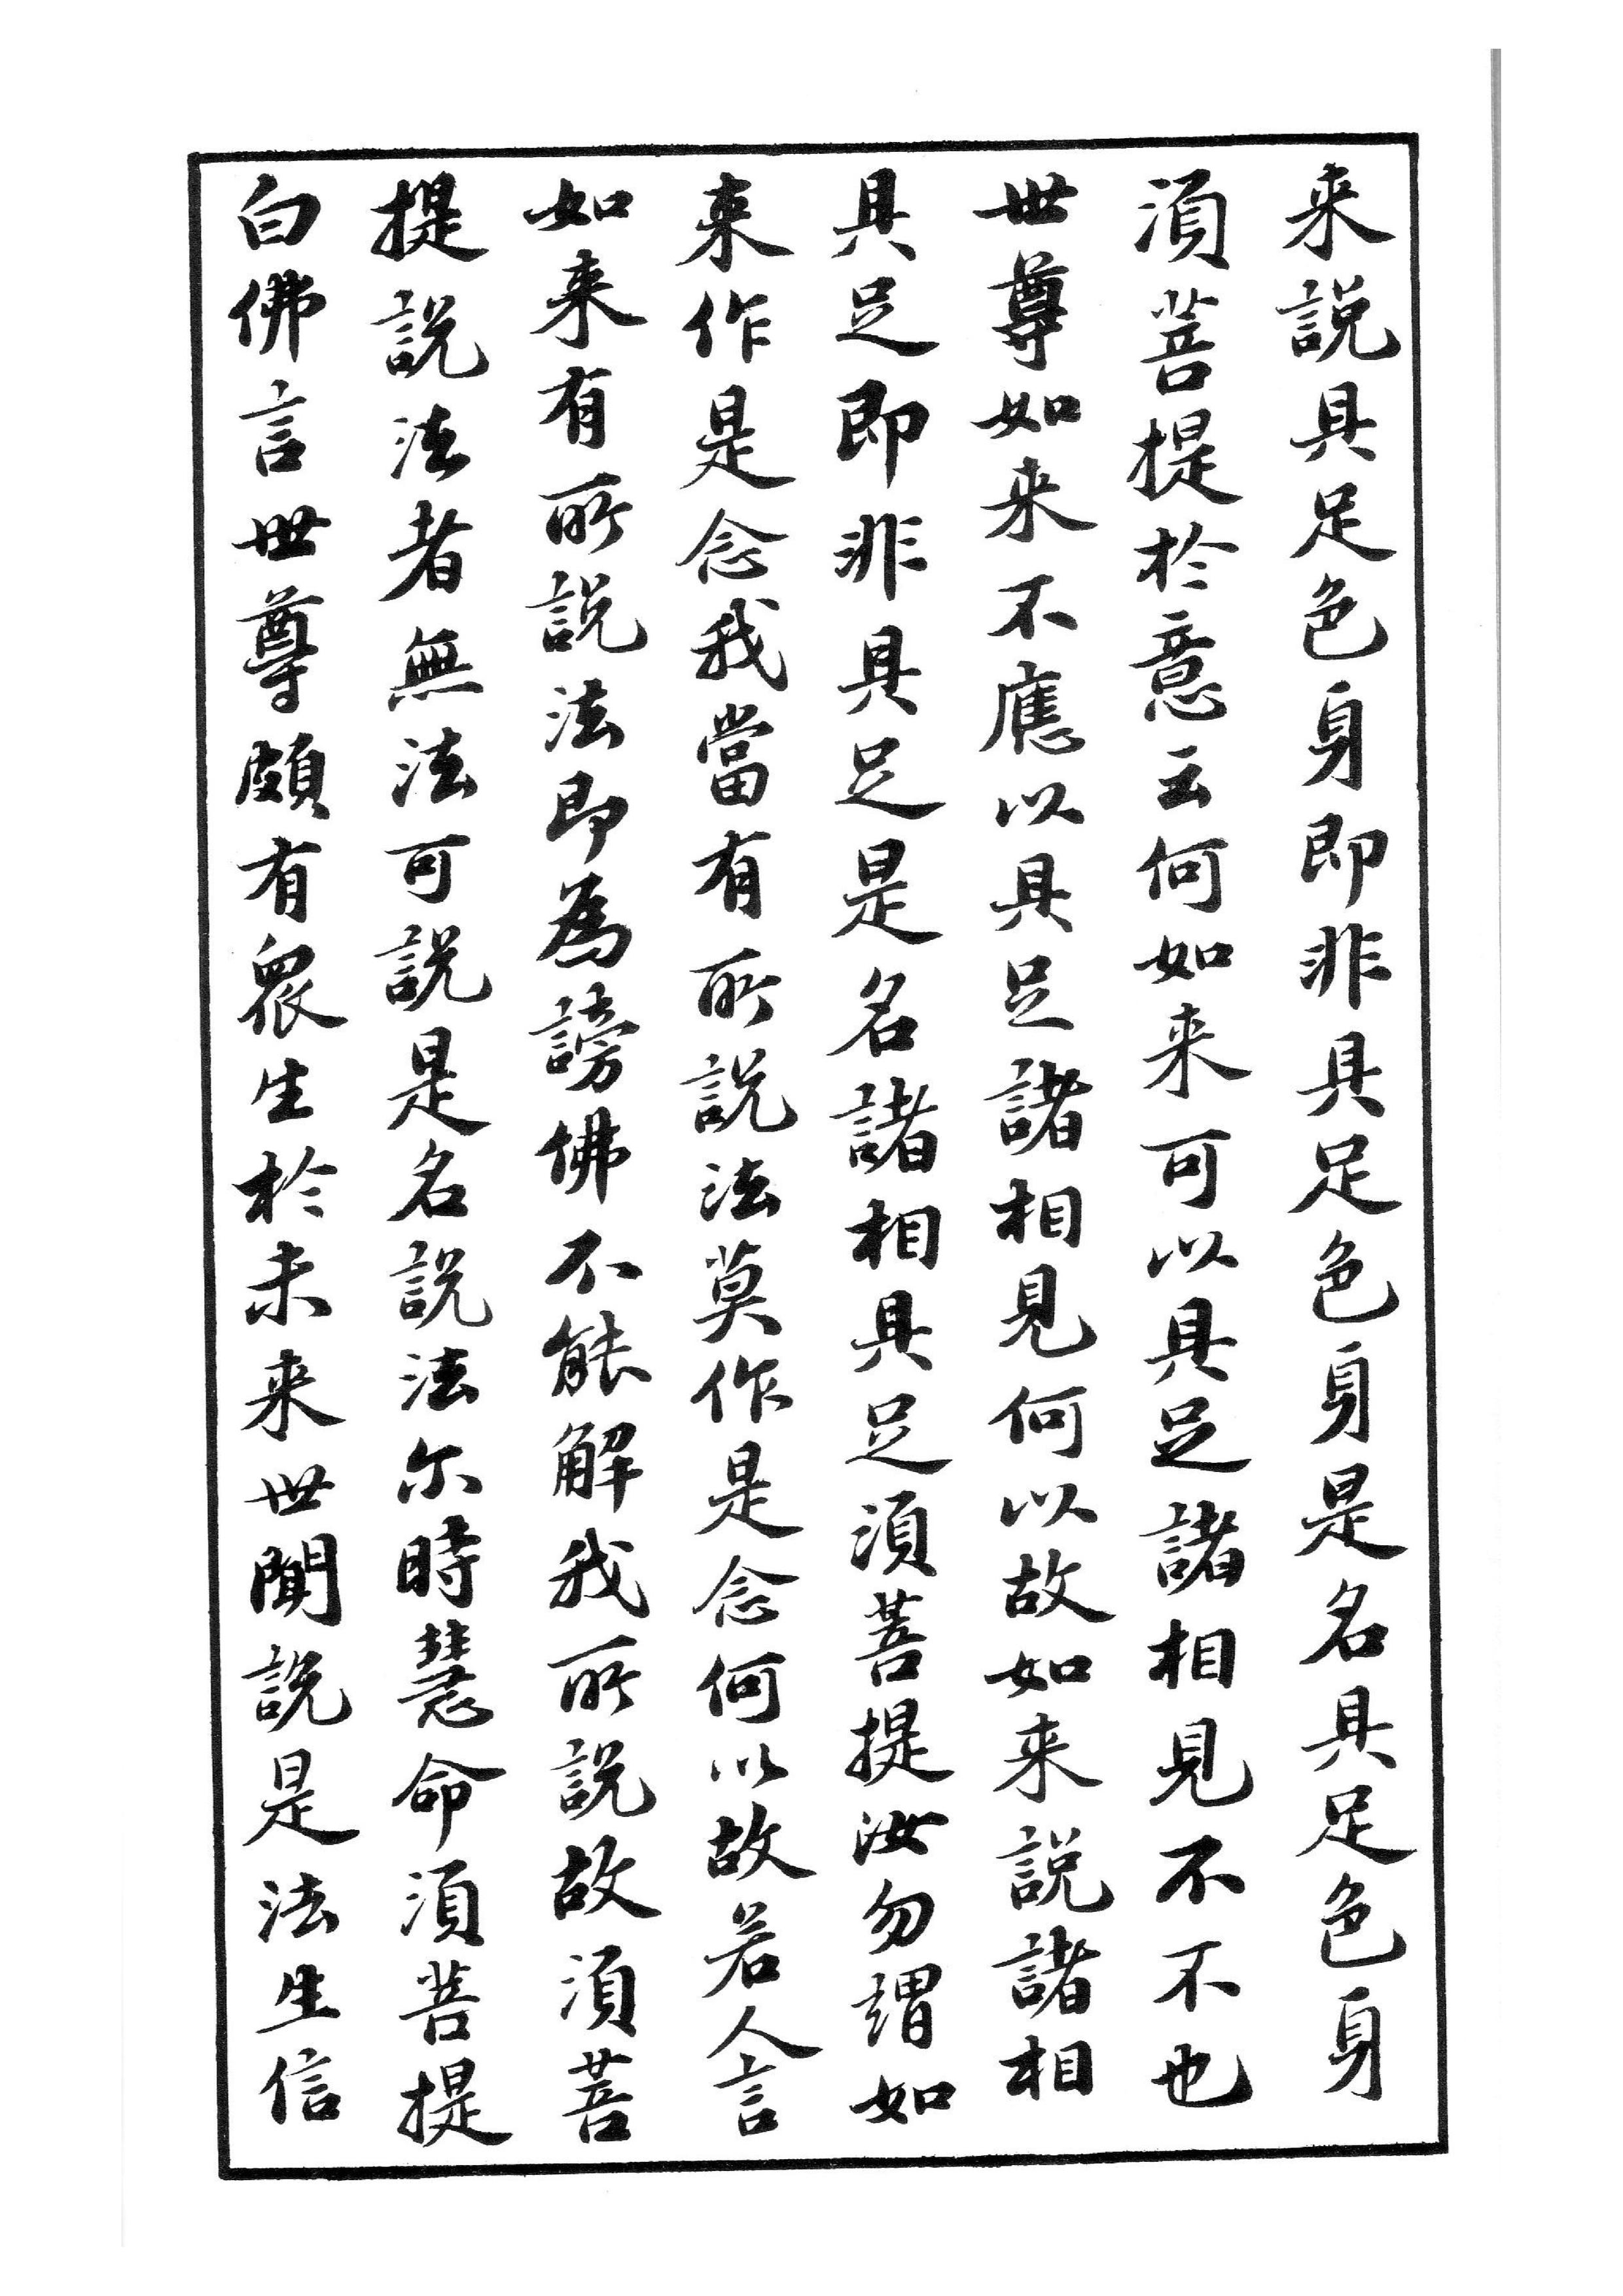 来説具足色身即非具足色身是名具足色身
湏菩提於意云何如来可以具足諸相見不不也
世尊如来不應以具足諸相見何以故如来説諸相
具足即非具足是名諸相具足湏菩提汝勿謂如
来作是念我當有所説法莫作是念何以故若人言
如来有所説法即為謗佛不能解我所説故湏菩
提説法者無法可説是名説法尔時慧命湏菩提
白佛言世尊頗有衆生於未来世聞説是法生信